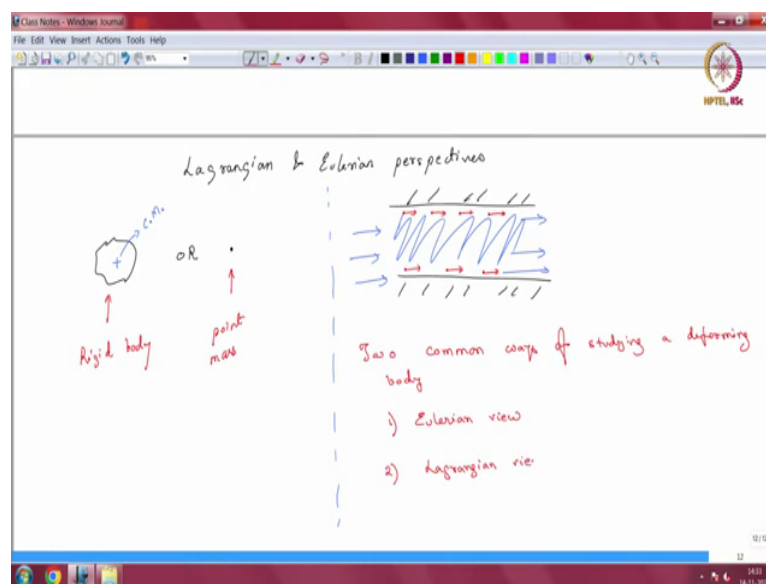 Class Notes - Windows Journal
File Edit View Insert Actions Tools Help
NPTEL, IISc
Lagrangian & Eulerian perspectives
C.M.
OR
Rigid body
point
mass
Two common ways of studying a deforming
body
1) Eulerian view
2) Lagrangian vie
12
14:33